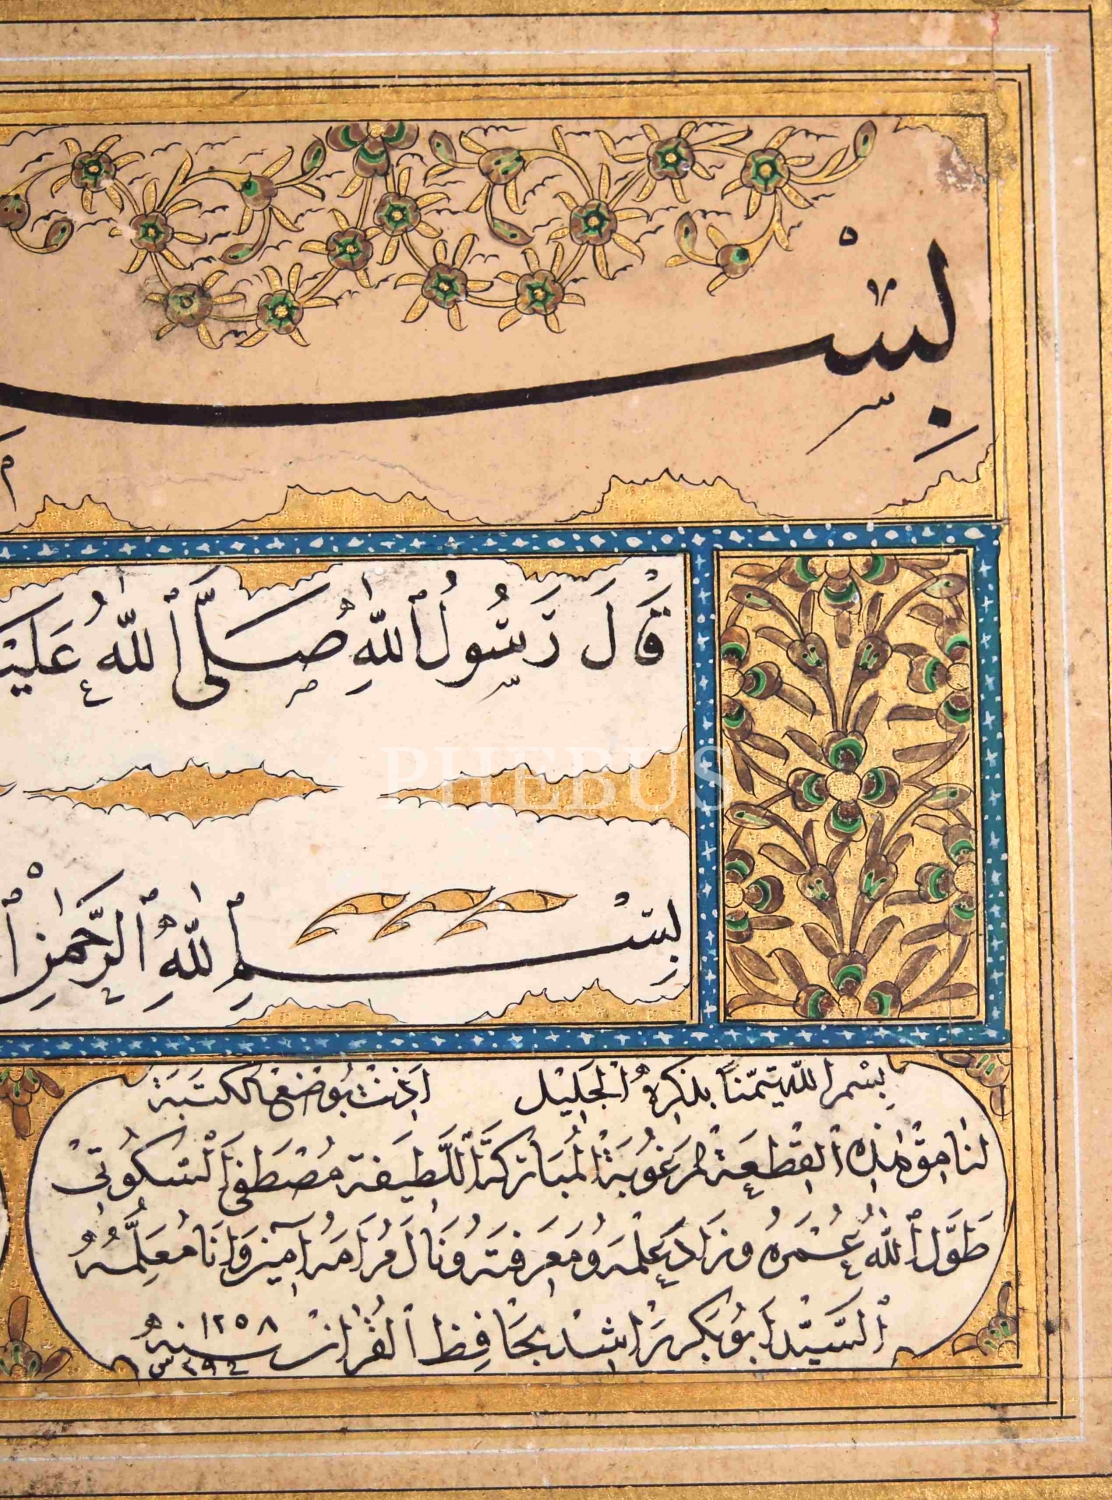 بِسْـ
قَالَ رَسُولُ ٱللّٰهِ صَلَّى ٱللّٰهُ عَلَيْـ
PHEBUS
بِسْمِ ٱللّٰهِ ٱلرَّحْمٰنِ ٱ
بسم الله تيمّناً بذكره الجليل اذنت بوضع الكتبة
لنامق هذه القطعة المرغوبة المباركة اللطيفة مصطفى السكوتي
طوّل الله عمره وزاد علمه ومعرفته ونال مرامه آمين وانا معلمه
السيّد ابو بكر راشد بحافظ القرآن سنه ١٢٥٨